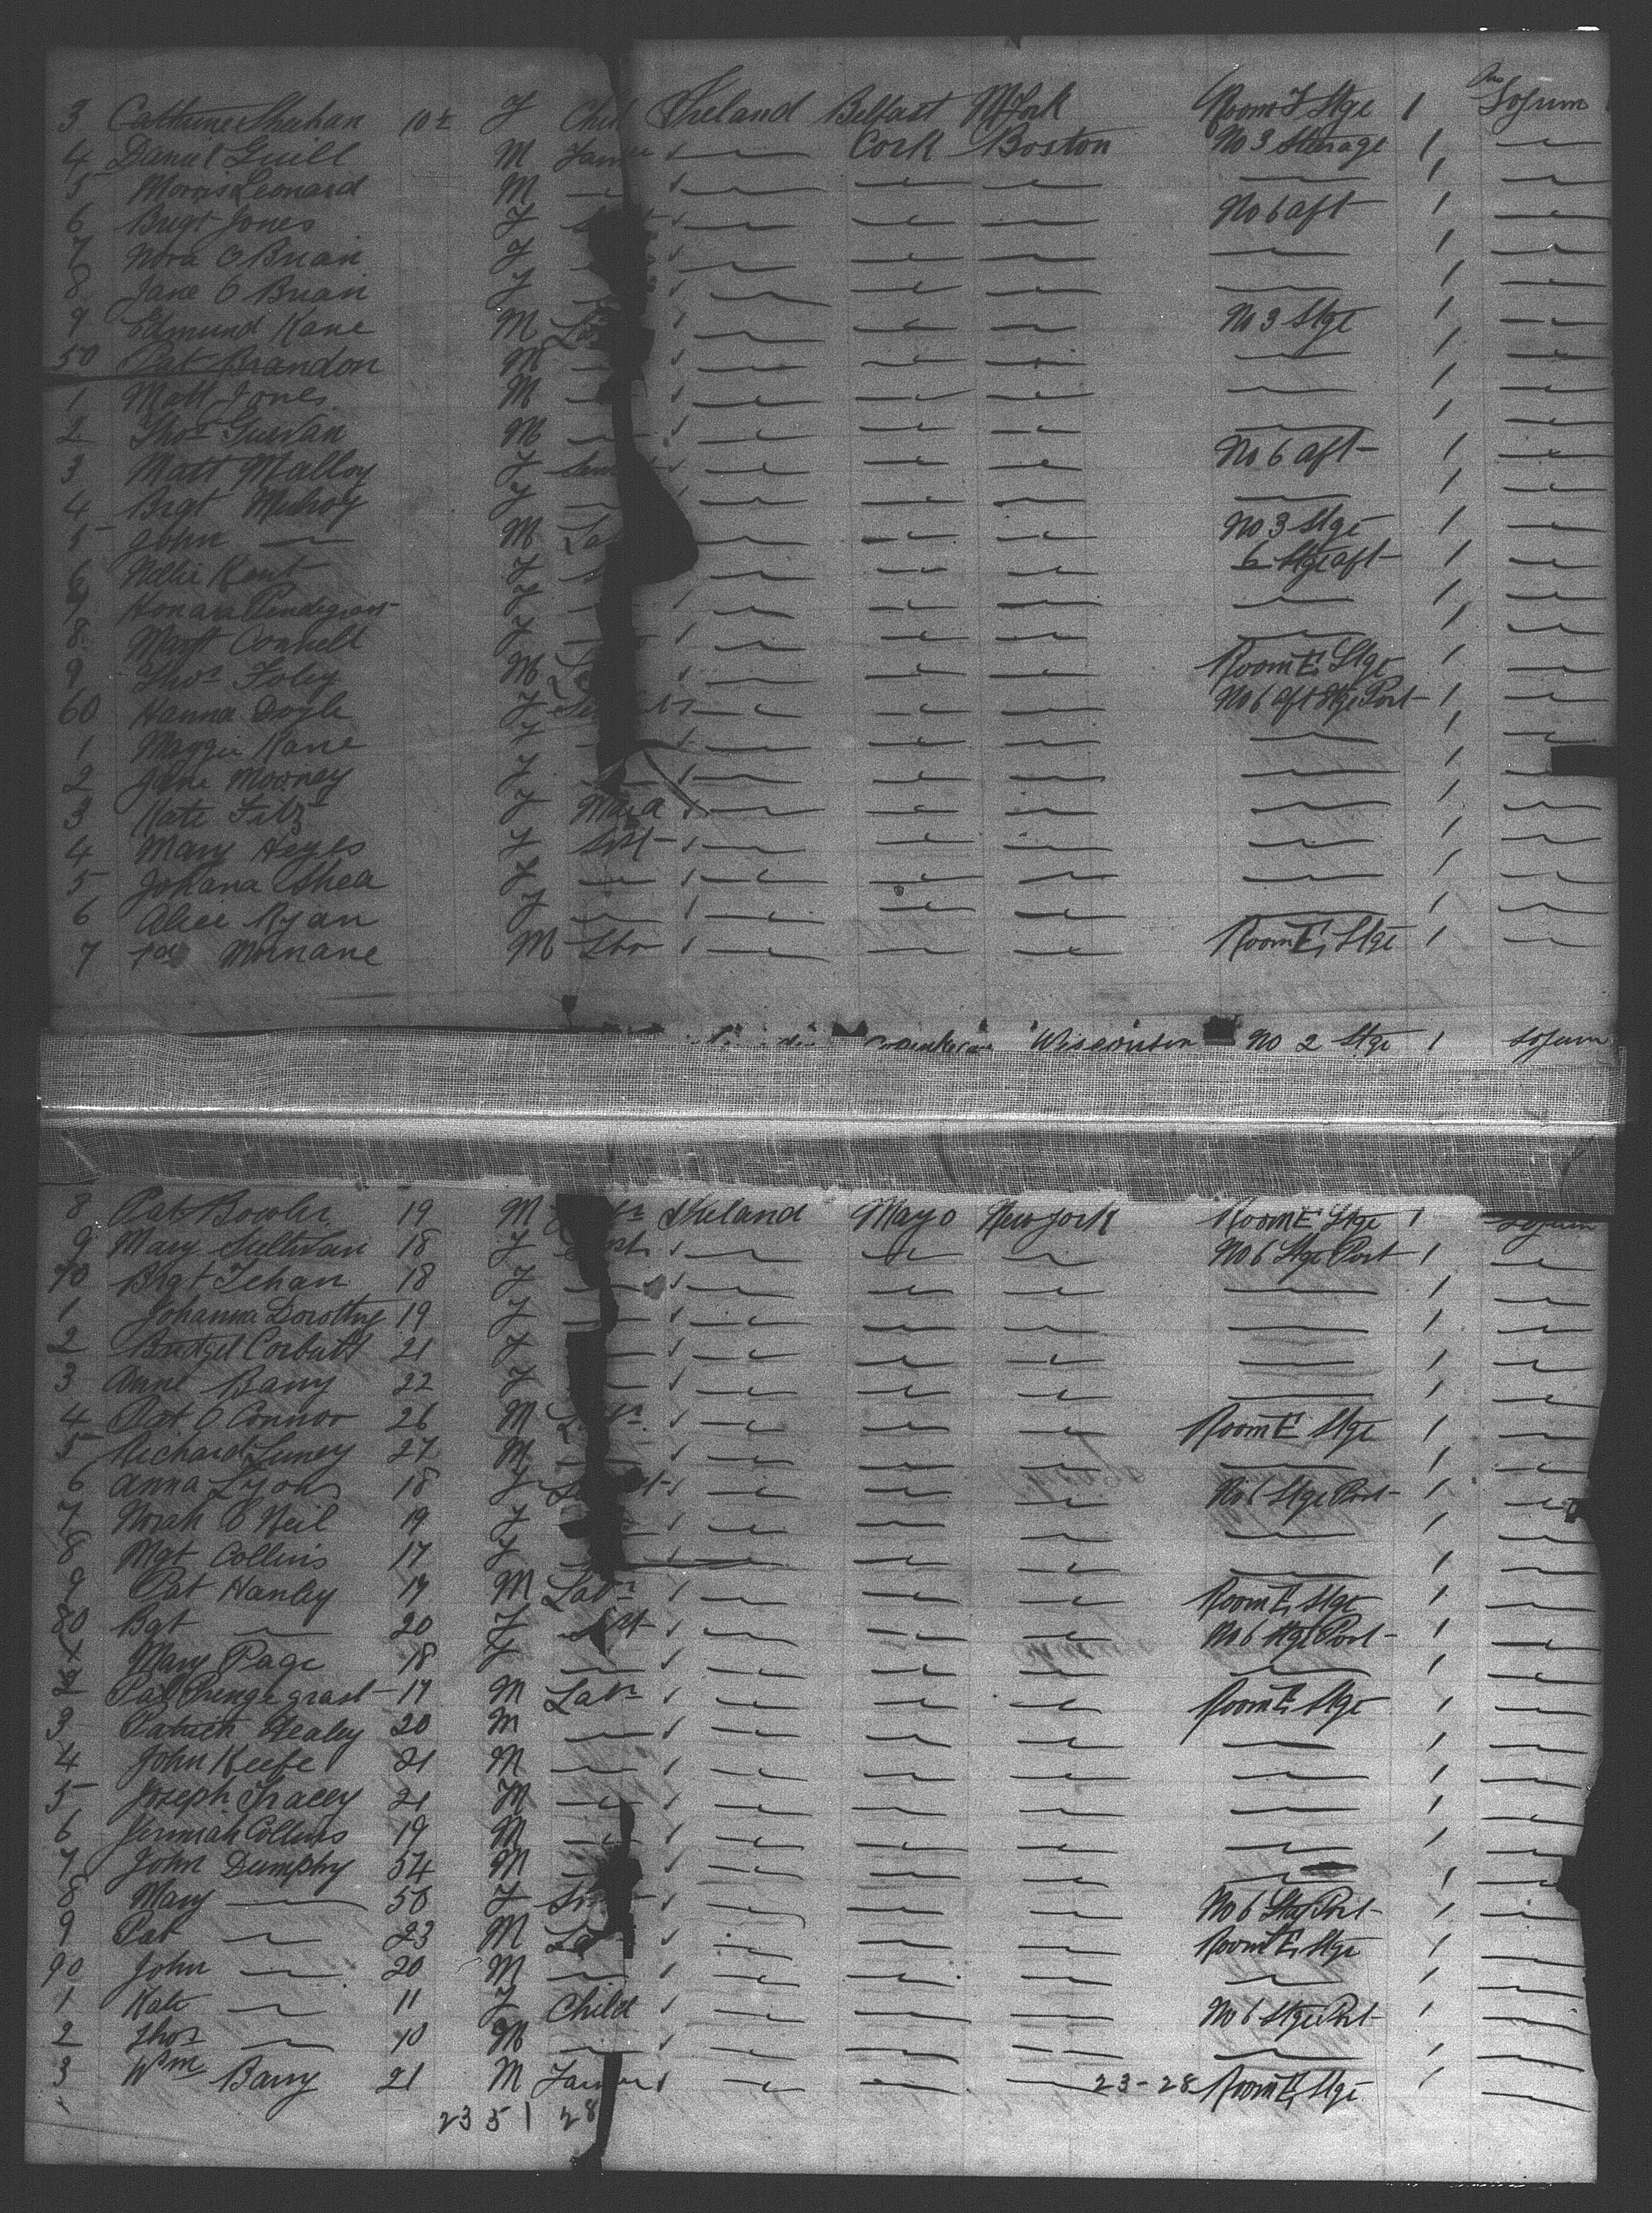 3 Cathrine Shahan 10 F Chil Ireland Belfast NYork Room F Stge 1 Sojurn
4 Daniel Guill M Farmer 1 — Cork Boston No 3 Sterage 1 —
5 Morris Leonard M — 1 — — — — 1 —
6 Brigt Jones F 1 — — — No 6 aft 1 —
7 Nora O Brian F — — — — 1 —
8 Jane O Brian F 1 — — — — 1 —
9 Edmund Kane M Lab 1 — — — No 3 Stge 1 —
50 Pat Brandon M — 1 — — — — 1 —
1 Matt Jones M — 1 — — — — 1 —
2 Thos M — 1 — — — — 1 —
3 Matt Malloy F 1 — — — No 6 aft 1 —
4 Brgt Mulroy F — 1 — — — — 1 —
5 John — M Lab — — — No 3 Stge 1 —
6 Nellie Kent F — — — 6 Stge aft 1 —
7 Honara F — 1 — — — — 1 —
8 Connell F — 1 — — — — 1 —
9 Thos Foley M 1 — — — Room E Stge 1 —
60 Hanna Doyle F 1 — — — No 6 aft Stge Port 1 —
1 Maggie Kane F — 1 — — — — 1 —
2 Jane Mooney F — 1 — — — — 1 —
3 Kate Fitz F Maid 1 — — — — 1 —
4 Mary Heyes F 1 — — — — 1 —
5 Johana Shea F — 1 — — — — 1 —
6 Alice Ryan F — 1 — — — — 1 —
7 Mornane M 1 — — — Room E Stge 1 —
Wisconsin No 2 Stge 1 Sojurn
8 Pat Bowler 19 M Ireland Mayo New York Room E Stge 1 Sojurn
9 Mary Sullivan 18 F 1 — — — No 6 Stge Port 1 —
70 Brgt Tehan 18 F — 1 — — — — 1 —
1 Johanna Dorothy 19 F — 1 — — — — 1 —
2 Bridget Corbutt 21 F — 1 — — — — 1 —
3 Anne Barry 22 F — 1 — — — — 1 —
4 Pat O Connor 26 M Labr 1 — — — Room E Stge 1 —
5 Richard 27 M — 1 — — — — 1 —
6 Anna Lyons 18 F 1 — — — No 6 Stge Port 1 —
7 Norah O Neil 19 F — 1 — — — — 1 —
8 Mgt Collins 17 F — — — — — 1 —
9 Pat Hanley 19 M Labr 1 — — — Room E Stge 1 —
80 Bgt — 20 F 1 — — — No 6 Stge Port 1 —
Mary Page 18 F — 1 — — — — 1 —
2 Pat 17 M Labr 1 — — — Room E Stge 1 —
3 Patrick Healey 20 M — 1 — — — — 1 —
4 John Keefe 21 M — 1 — — — — 1 —
5 Joseph Tracey 21 M — 1 — — — — 1 —
6 Jermiah Collins 19 M — 1 — — — — 1 —
7 John Dumphy 54 M — 1 — — — — 1 —
8 Mary — 50 F 1 — — — No 6 Stge Port 1 —
9 Pat — 23 M Lab 1 — — — Room E Stge 1 —
90 John — 20 M — 1 — — — — 1 —
1 Kate — 11 F Child 1 — — — No 6 Stge Port 1 —
2 Thos — 10 M — 1 — — — — 1 —
3 Wm Barry 21 M Farmer 1 — — — 23-28 Room E Stge 1 —
23 51 28